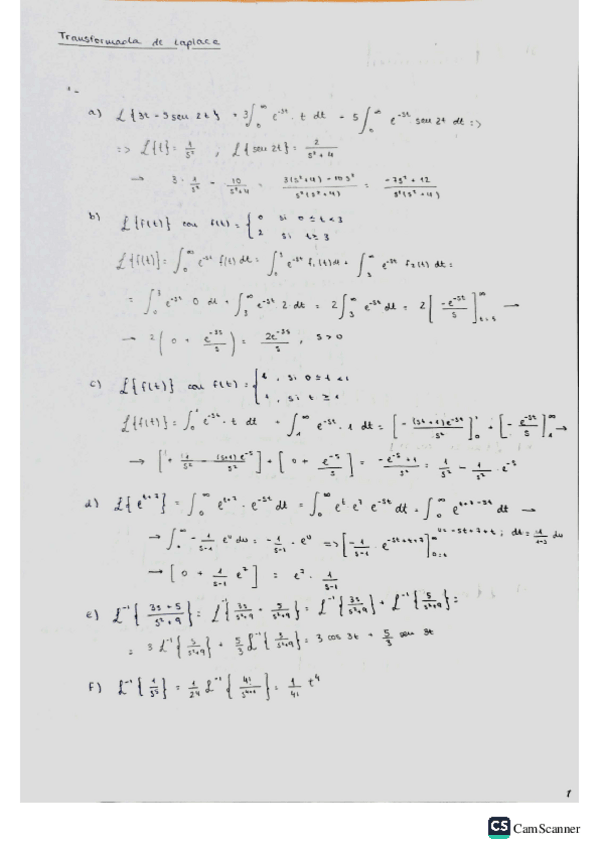 Transformada de Laplace
1.-
a) ℒ{3t - 5 sen 2t} = 3∫₀^∞ e^-st · t dt - 5∫₀^∞ e^-st sen 2t dt =>
=> ℒ{t} = 1/s² , ℒ{sen 2t} = 2/(s²+4)
→ 3 · 1/s² - 10/(s²+4) = (3(s²+4) - 10s²)/(s²(s²+4)) = (-7s² + 12)/(s²(s²+4))
b) ℒ{f(t)} con f(t) = { 0 si 0 ≤ t < 3
2 si t ≥ 3
ℒ{f(t)} = ∫₀^∞ e^-st f(t) dt = ∫₀^3 e^-st f₁(t) dt + ∫₃^∞ e^-st f₂(t) dt =
= ∫₀^3 e^-st 0 dt + ∫₃^∞ e^-st 2 dt = 2∫₃^∞ e^-st dt = 2[-e^-st/s]^∞ →
→ 2(0 + e^-3s/s) = 2e^-3s/s , s > 0
c) ℒ{f(t)} con f(t) = { t , si 0 ≤ t < 1
1 , si t ≥ 1
ℒ{f(t)} = ∫₀^1 e^-st · t dt + ∫₁^∞ e^-st · 1 dt = [-(st+1)e^-st/s²]₀^1 + [-e^-st/s]₁^∞ →
→ [1/s² - (s+1)e^-s/s²] + [0 + e^-s/s] = (-e^-s + 1)/s² = 1/s² - 1/s² · e^-s
d) ℒ{e^t+7} = ∫₀^∞ e^t+7 · e^-st dt = ∫₀^∞ e^t e^7 e^-st dt = ∫₀^∞ e^t+7-st dt →
→ ∫₀^∞ - 1/(s-1) e^u du = - 1/(s-1) · e^u => [- 1/(s-1) · e^-st+t+7]^∞ u = -st+7+t ; dt = 1/(1-s) du
→ [0 + 1/(s-1) e^7] = e^7 · 1/(s-1)
e) ℒ^-1{(3s + 5)/(s²+9)} = ℒ^-1{3s/(s²+9) + 5/(s²+9)} = ℒ^-1{3s/(s²+9)} + ℒ^-1{5/(s²+9)} =
= 3ℒ^-1{s/(s²+9)} + 5/3 ℒ^-1{3/(s²+9)} = 3 cos 3t + 5/3 sen 3t
f) ℒ^-1{1/s⁵} = 1/24 ℒ^-1{4!/s^4+1} = 1/4! t⁴
1
CS CamScanner